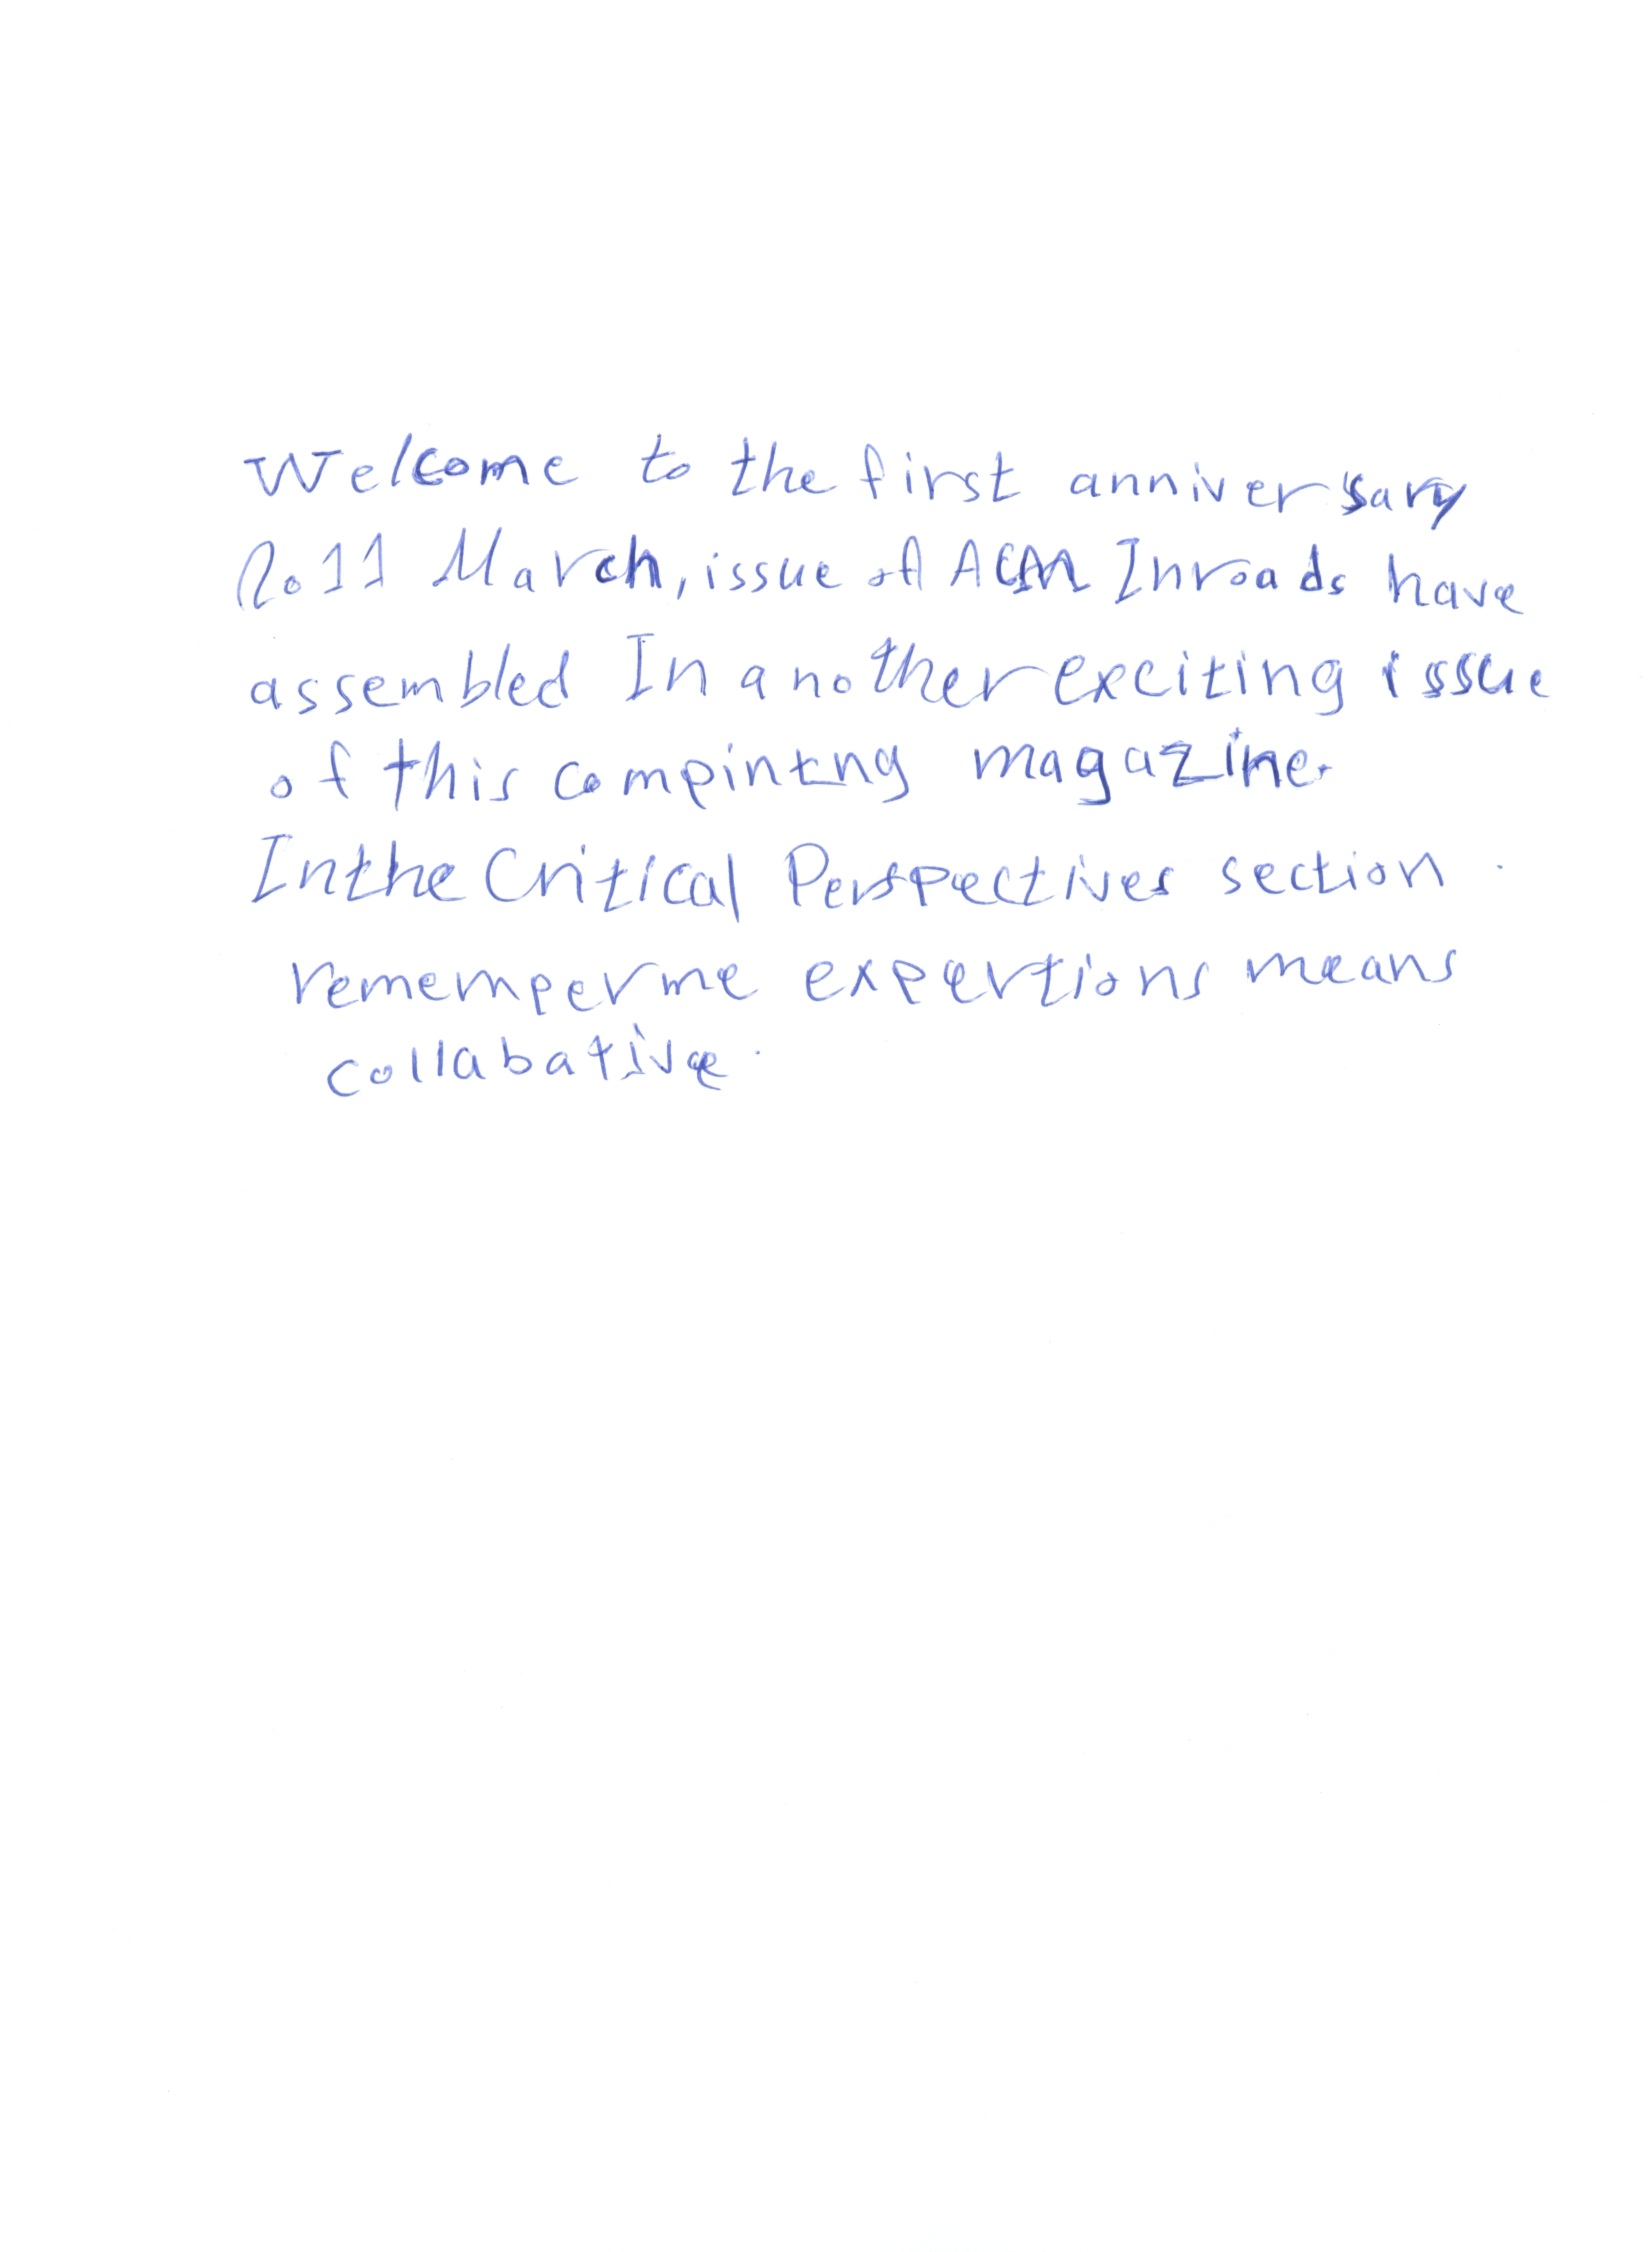 Welcome to the first anniversary
2011 March, issue of ACM Inroads have
assembled In another exciting issue
of this compintng magazine.
In the Critical Perspectives section.
rememperme expertions means
collabative.